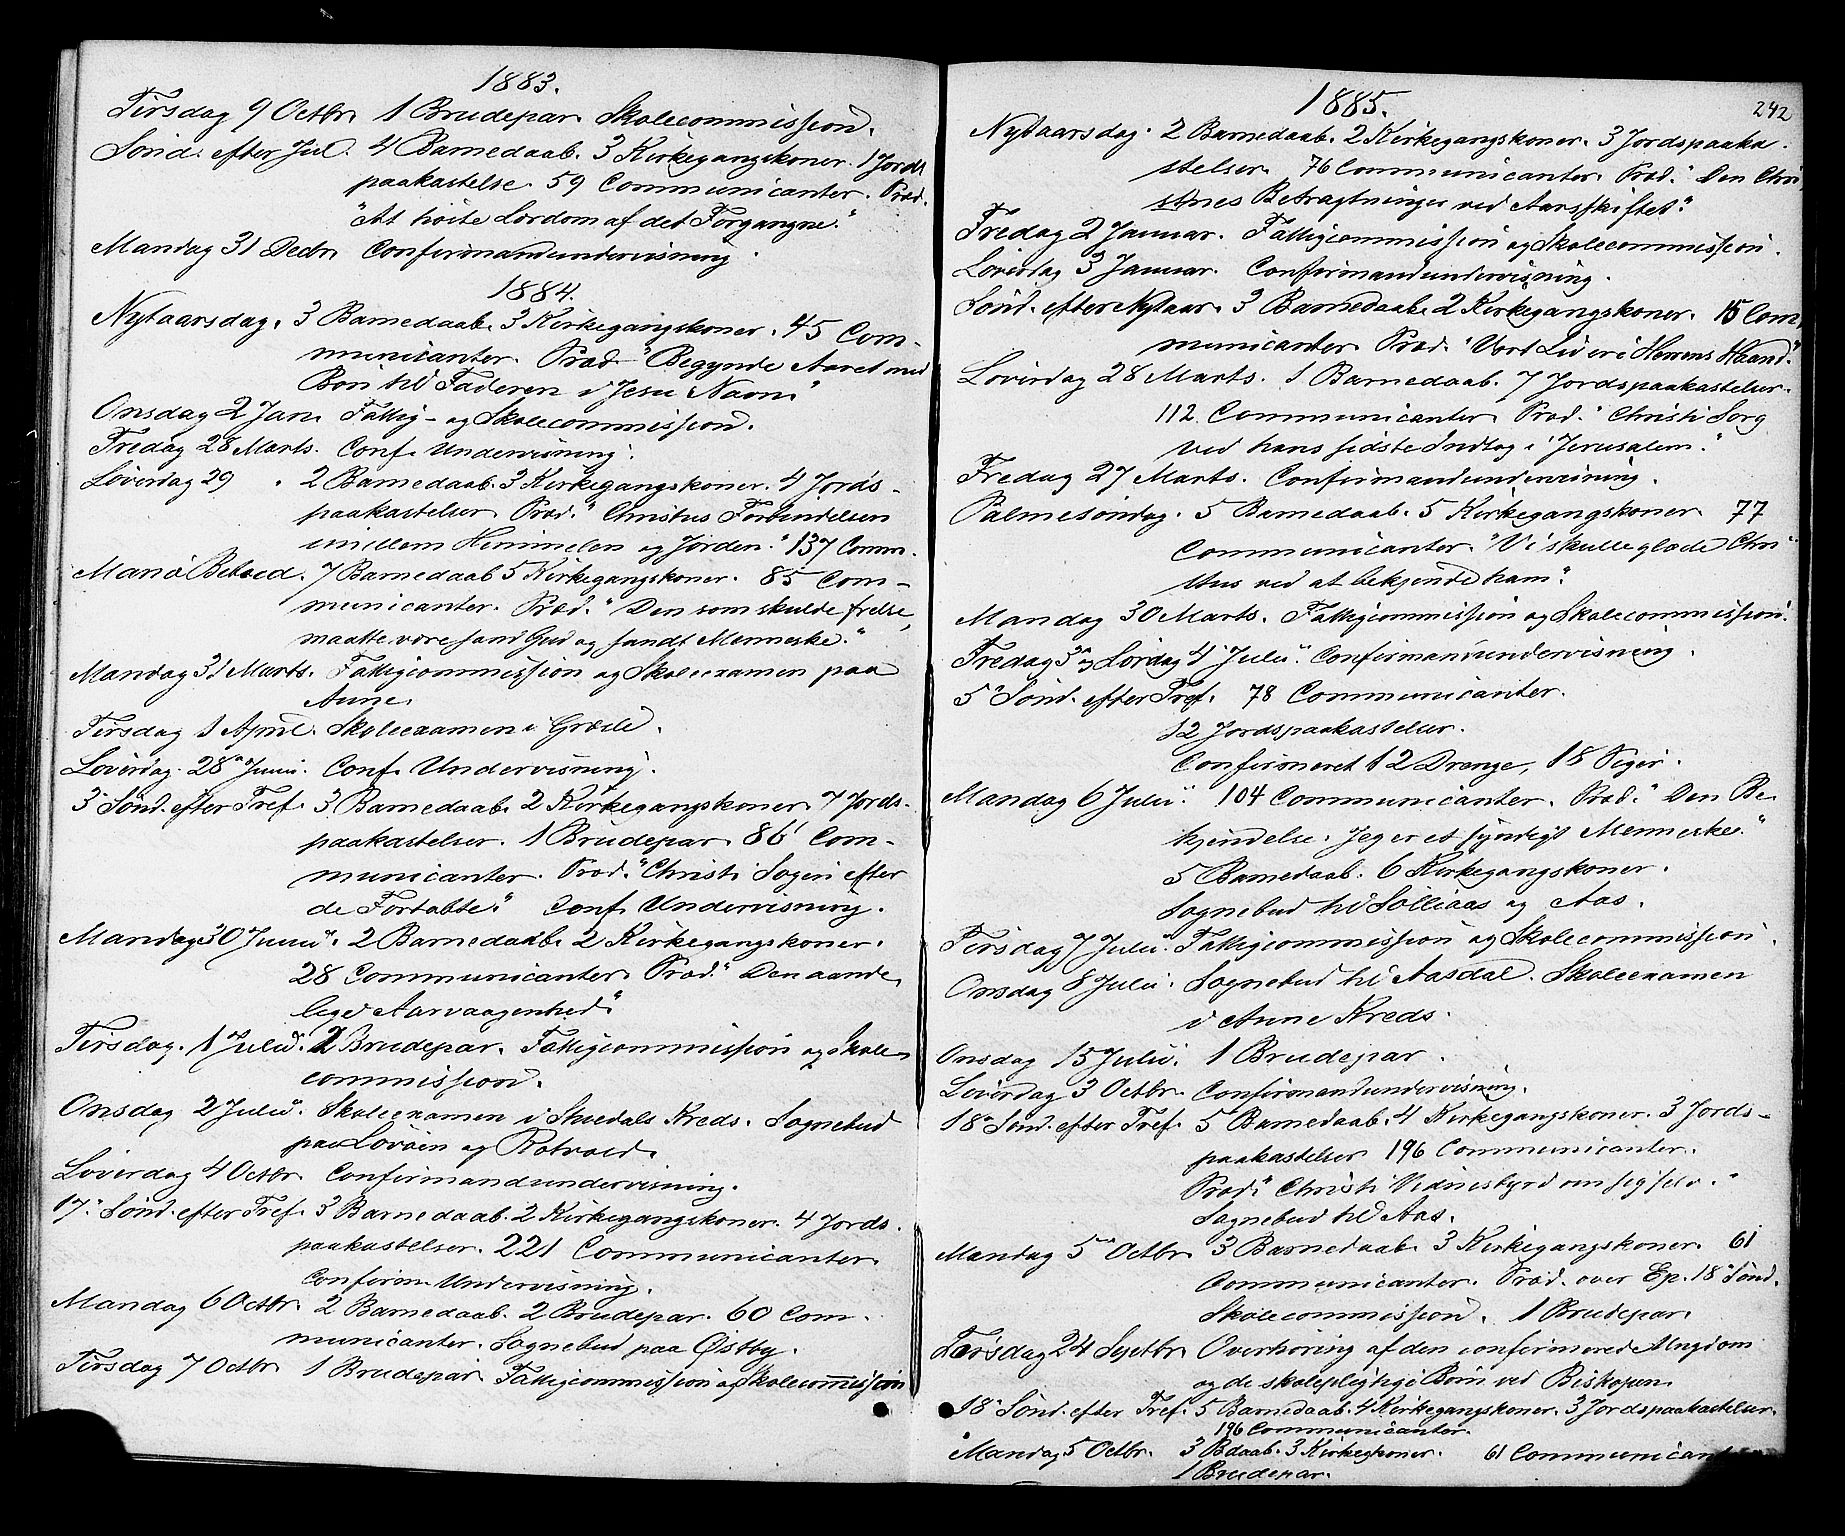 1883.
Tirsdag 9 Octbr. 1 Brudepar. Skolecommission.
Sönd. efter Jul. 4 Barnedaab. 3 Kirkegangskoner. 1 Jords
paakastelse. 59 Communicanter. Præd.
"At höste Lærdom af det Forgangne."
Mandag 31 Decbr. Confirmandundervisning.
1884.
Nytaarsdag. 3 Barnedaab. 3 Kirkegangskoner. 45 Com-
municanter. Præd. "Begynde Aaret med
Bön til Faderen i Jesu Navn."
Onsdag 2 Jan. Fattig- og Skolecommission.
Fredag 28 Marts. Conf. Undervisning.
Löverdag 29 " 2 Barnedaab. 3 Kirkegangskoner. 4 Jords-
paakastelser. Præd. "Christus Forbindelsen
imellem Himmelen og Jorden." 137 Comm.
Mariæ Beb. 7 Barnedaab 5 Kirkegangskoner. 85 Com-
municanter. Præd. "Den som skulde frelse,
maatte være sand Gud og sandt Menneske."
Mandag 31 Marts. Fattigcommission og Skoleexamen paa
Aune.
Tirsdag 1 April. Skoleexamen i Græsli.
Löverdag. 28 Juni. Conf. Undervisning.
3 Sönd. efter Tref. 3 Barnedaab. 2 Kirkegangskoner. 7 Jords-
paakastelser. 1 Brudepar. 86 Com-
municanter. Præd. "Christi Sögen efter
de Fortabte." Conf. Undervisning.
Mandag 30 Juni. 2 Barnedaab. 2 Kirkegangskoner.
28 Communicanter. Præd. "Den aande-
lige Aarvaagenhed"
Tirsdag. 1 Juli. 2 Brudepar. Fattigcommission og Skole-
commission.
Onsdag 2 Juli. Skoleexamen i Stuedals Kreds. Sognebud
paa Lövöen og Rotvold.
Löverdag 4 Octbr. Confirmandundervisning.
17. Sönd. efter Tref. 3 Barnedaab. 2 Kirkegangskoner. 4 Jords.
paakastelser. 221 Communicanter.
Confirm. Undervisning.
Mandag 6 Octbr. 2 Barnedaab. 2 Brudepar. 60 Com-
municanter. Sognebud paa Østby.
Tirsdag 7 Octbr. 1 Brudepar. Fattigcommission og Skolecommission
242
1885.
Nytaarsdag. 2 Barnedaab. 2 Kirkegangskoner. 3 Jordspaaka-
stelser. 76 Communicanter. Præd. "Den Chri-
stnes Betragtninger ved Aarsskiftet".
Fredag 2 Januar. Fattigcommission og Skolecommission.
Löverdag 3 Januar. Confirmandundervisning.
Sönd. efter Nytaar. 3 Barnedaab. 2 Kirkegangskoner. 15 Com-
municanter. Præd. "Vort Liv er i Herrens Haand."
Löverdag 28 Marts. 1 Barnedaab. 7 Jordspaakastelser.
112 Communicanter. Præd. "Christi Sorg
ved hans sidste Indtog i Jerusalem."
Fredag 27 Marts. Confirmandundervisning.
Palmesöndag. 5 Barnedaab. 5 Kirkegangskoner. 77
Communicanter. "Vi skulle glæde Chri-
stus ved at bekjende ham".
Mandag 30 Marts. Fattigcommission og Skolecommission.
Fredag 3 og Lördag 4 Juli. Confirmandundervisning.
5 Sönd. efter Tref. 78 Communicanter.
12 Jordspaakastelser.
Confirmeret 12 Drenge, 18 Piger.
Mandag 6 Juli. 104 Communicanter. Præd. "Den Be-
kjendelse: Jeg er et syndigt Menneske."
5 Barnedaab. 6 Kirkegangskoner.
Sognebud til Solliaas og Aas.
Tirsdag 7 Juli. Fattigcommission og Skolecommission.
Onsdag 8 Juli. Sognebud til Aasdal. Skoleexamen
i Aune Kreds.
Onsdag 15 Juli. 1 Brudepar.
Löverdag 3 Octbr. Confirmandundervisning.
18 Sönd. efter Tref. 5 Barnedaab. 4 Kirkegangskoner. 3 Jords-
paakastelser. 196 Communicanter.
Præd. "Christi Vidnesbyrd om sig selv."
Sognebud til Aas.
Mandag 5 Octbr. 3 Barnedaab. 3 Kirkegangskoner. 61
Communicanter. Præd. over Ep. 18 Sönd.
Skolecommission. 1 Brudepar.
Torsdag 24 Septbr. Overhöring af den confirmerede Ungdom
og de skolepligtige Börn ved Biskopen.
18 Sönd. efter Tref. 5 Barnedaab. 4 Kirkegangskoner. 3 Jordspaakastelser.
196 Communicanter.
Mandag 5 Octbr. 3 Bdaab. 3 Kirkegkoner. 61 Communicant
1 Brudepar.